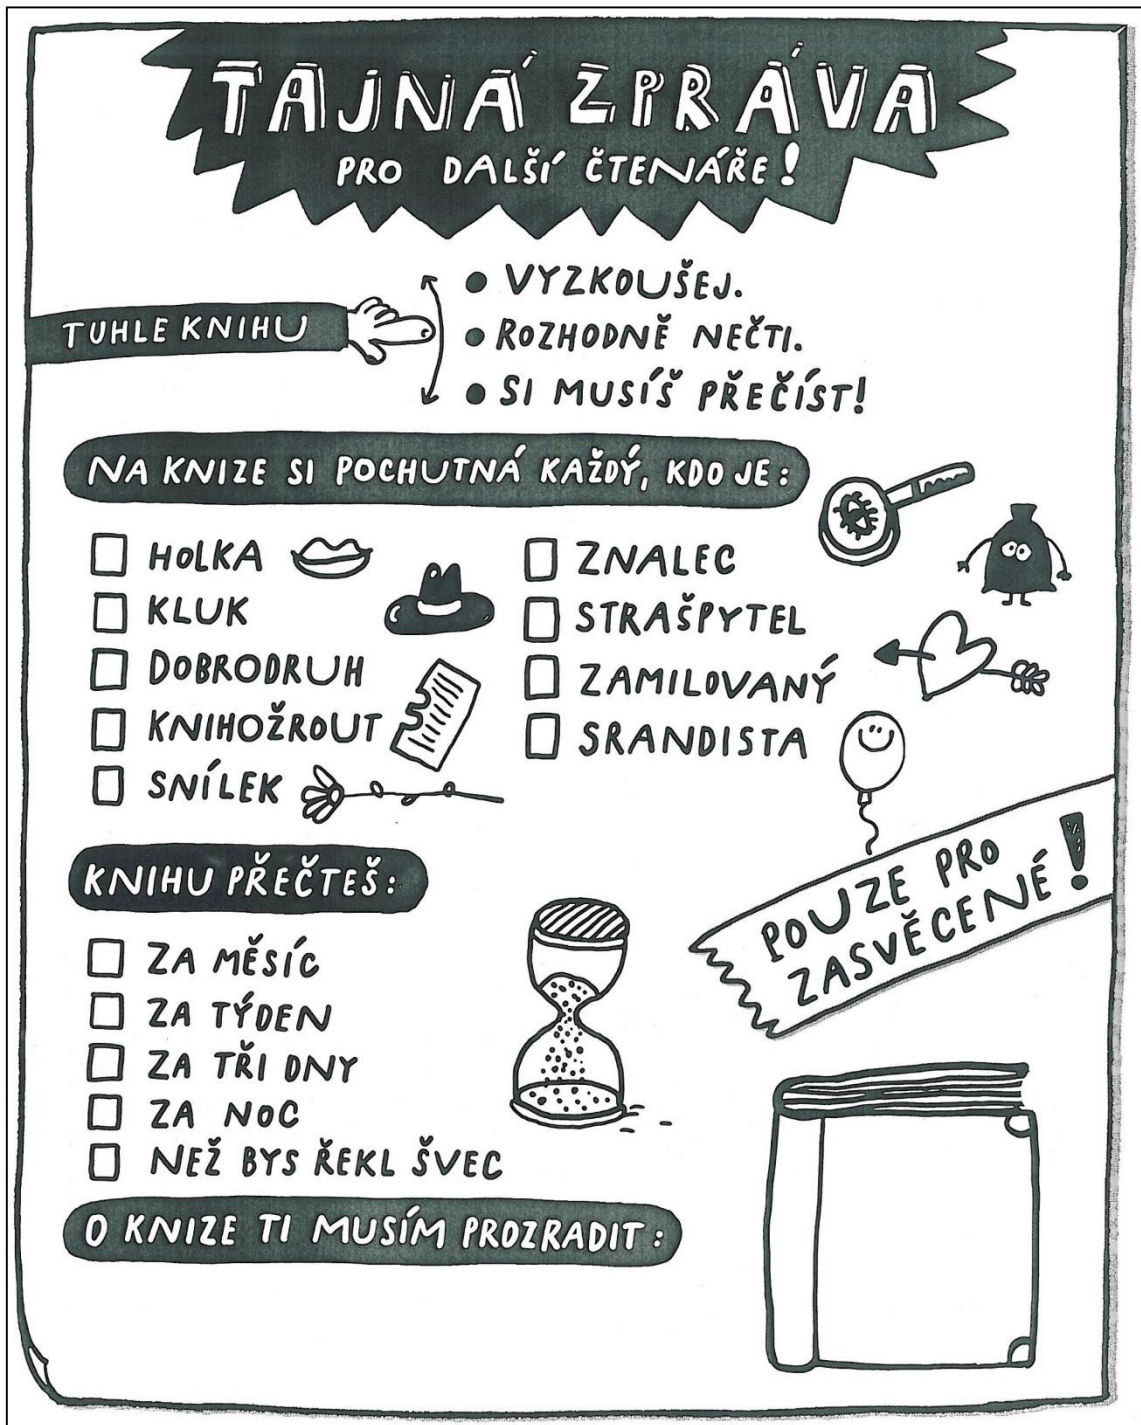 TAJNÁ ZPRÁVA
PRO DALŠÍ ČTENÁŘE!
TUHLE KNIHU
• VYZKOUŠEJ.
• ROZHODNĚ NEČTI.
• SI MUSÍŠ PŘEČÍST!
NA KNIZE SI POCHUTNÁ KAŽDÝ, KDO JE:
HOLKA
KLUK
DOBRODRUH
KNIHOŽROUT
SNÍLEK
ZNALEC
STRAŠPYTEL
ZAMILOVANÝ
SRANDISTA
POUZE PRO
ZASVĚCENÉ!
KNIHU PŘEČTEŠ:
ZA MĚSÍC
ZA TÝDEN
ZA TŘI DNY
ZA NOC
NEŽ BYS ŘEKL ŠVEC
O KNIZE TI MUSÍM PROZRADIT: